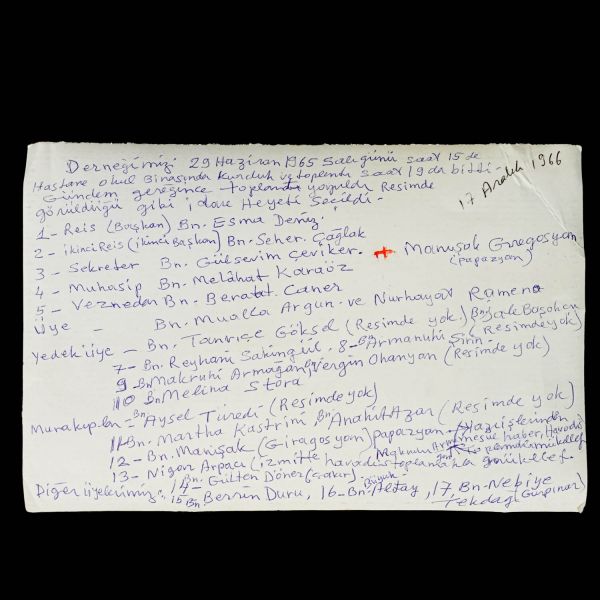 Derneğimiz 29 Haziran 1965 Salıgünü saat 15 de
Hastane okul Binasında Kurduk ve toplantı saat 19 da bitti-
17 Aralık 1966
Gündem gereğince toplantı yapıldı Resimde
görüldüğü gibi idare Heyeti Seçildi-
1- Reis (Başkan) Bn. Esma Deniz.
2- ikinci Reis (ikinci Başkan) Bn. Seher. Çağlak
3- Sekreter Bn. Gülsevim Çeviker. + Manuşak Giragosyan
(papazyan)
4- Muhasip Bn. Melâhat Karaöz
5- Veznedar Bn. Berat. Caner
Üye - Bn. Mualla Argun. ve Nurhayat Ramena
Yedek üye - Bn. Tanrıçe Göksel (Resimde yok)
7- Bn. Reyhani Sahingül. 8- Bn Armanuhi Sirin. (Resimdeyok)
9 Bn Makruhi Armağan Vergin Ohanyan (Resimde yok)
10 Bn Melina Stora
Murakıp. bn = Bn Aysel Türedi (Resimde yok)
11 Bn. Martha Kastrini, Bn Anahit Azar (Resimde yok)
12- Bn. Manişak (Giragosyan) papazyan- Yazıişlerinden
mesul haber, Havadis
13- Nigar Arpacı (izmitte havadis toplamakla mükellef-
Diğer üyelerimiz: 14- Bn. Gülten Döner (Çakır)
15 Bn. Berrin Duru, 16- Bn. Altay, 17 Bn- Nebiye
Tekdağ (Gürpınar)